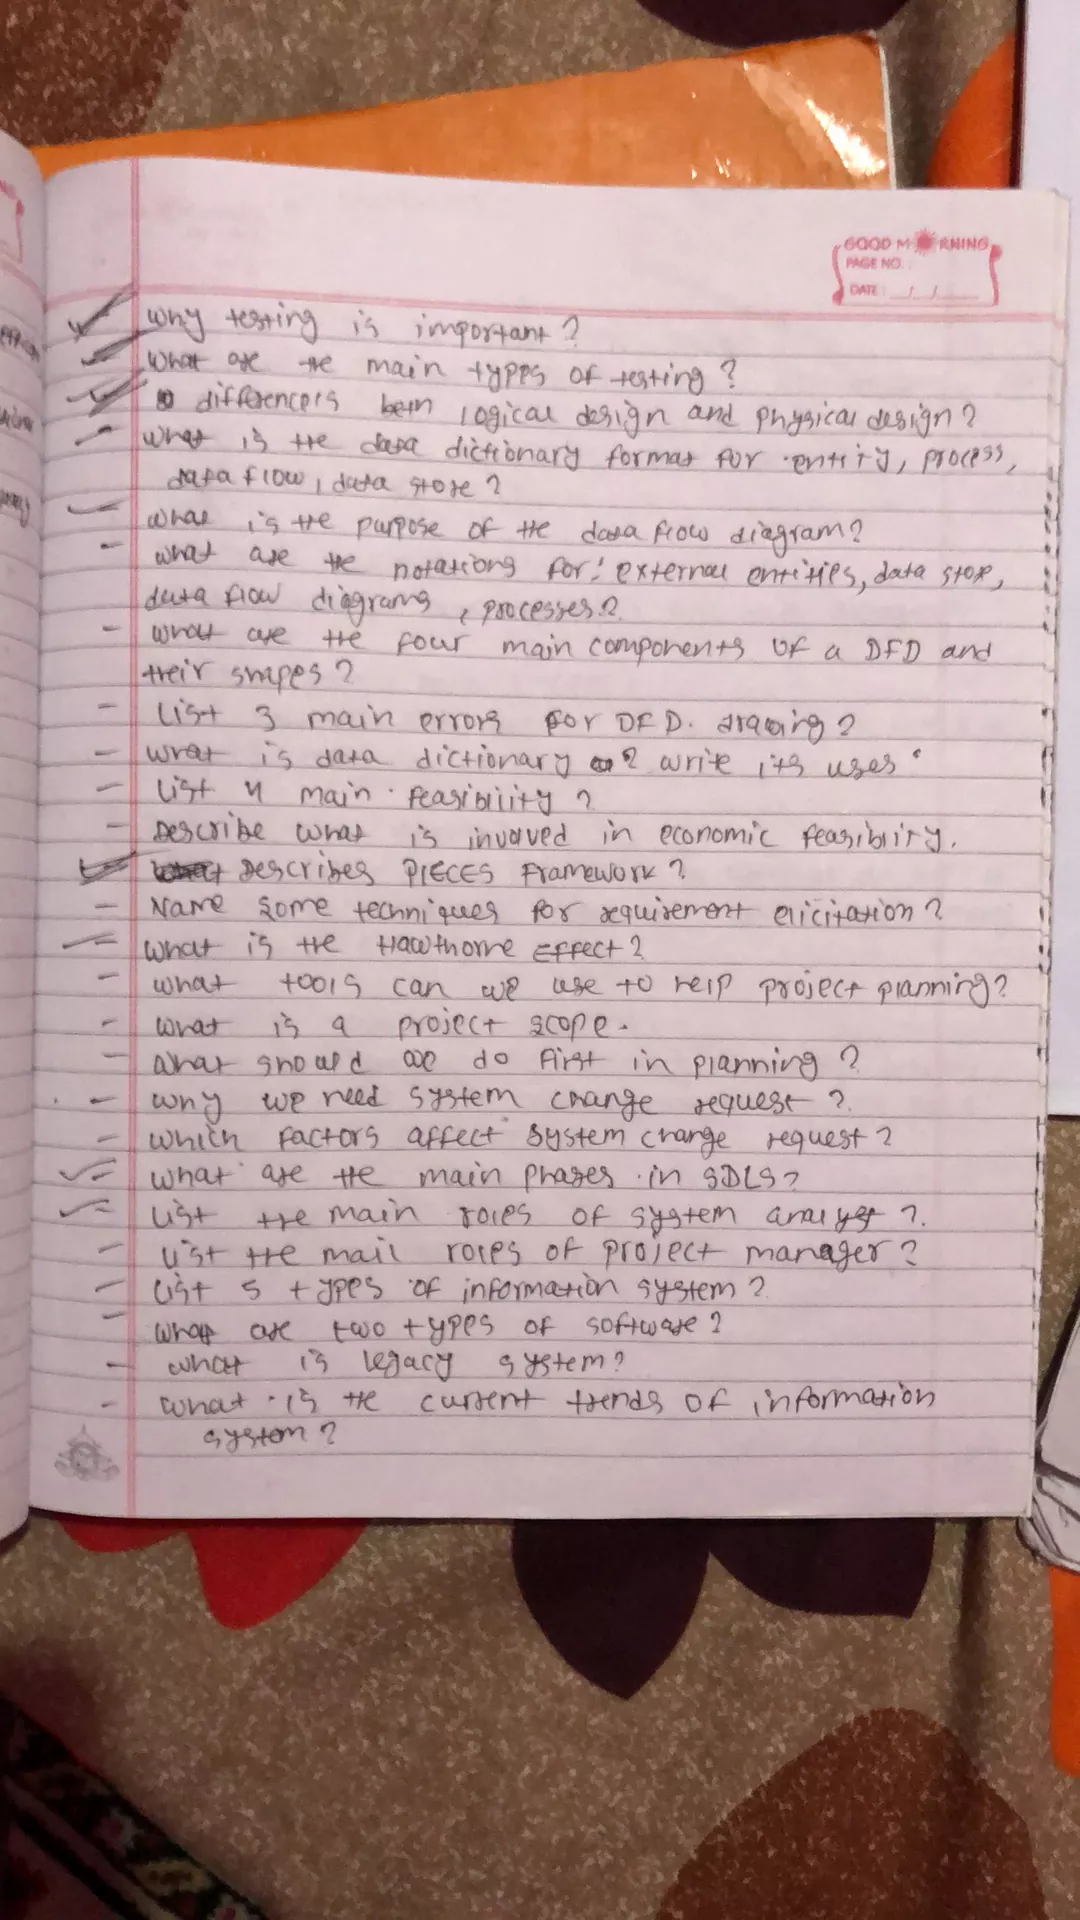 GOOD MORNING
PAGE NO.
DATE: / /
Why testing is important?
What are the main types of testing?
differencers betn logical design and physical design?
What is the data dictionary format for entity, process,
data flow, data store?
What is the purpose of the data flow diagram?
What are the notations for: external entities, data store,
data flow diagrams, processes?
What are the four main components of a DFD and
their shapes?
List 3 main errors for DFD. drawing?
What is data dictionary? write its uses
List 4 main feasibility?
Describe what is involved in economic feasibility.
Describes PIECES Framework?
Name some techniques for requirement elicitation?
What is the Hawthorne Effect?
What tools can we use to help project planning?
What is a project scope.
What should we do first in planning?
Why we need system change request?
Which factors affect system change request?
What are the main phases in SDLS?
List the main roles of system analyst?
List the mail roles of project manager?
List 5 types of information system?
What are two types of software?
What is legacy system?
What is the current trends of information
system?